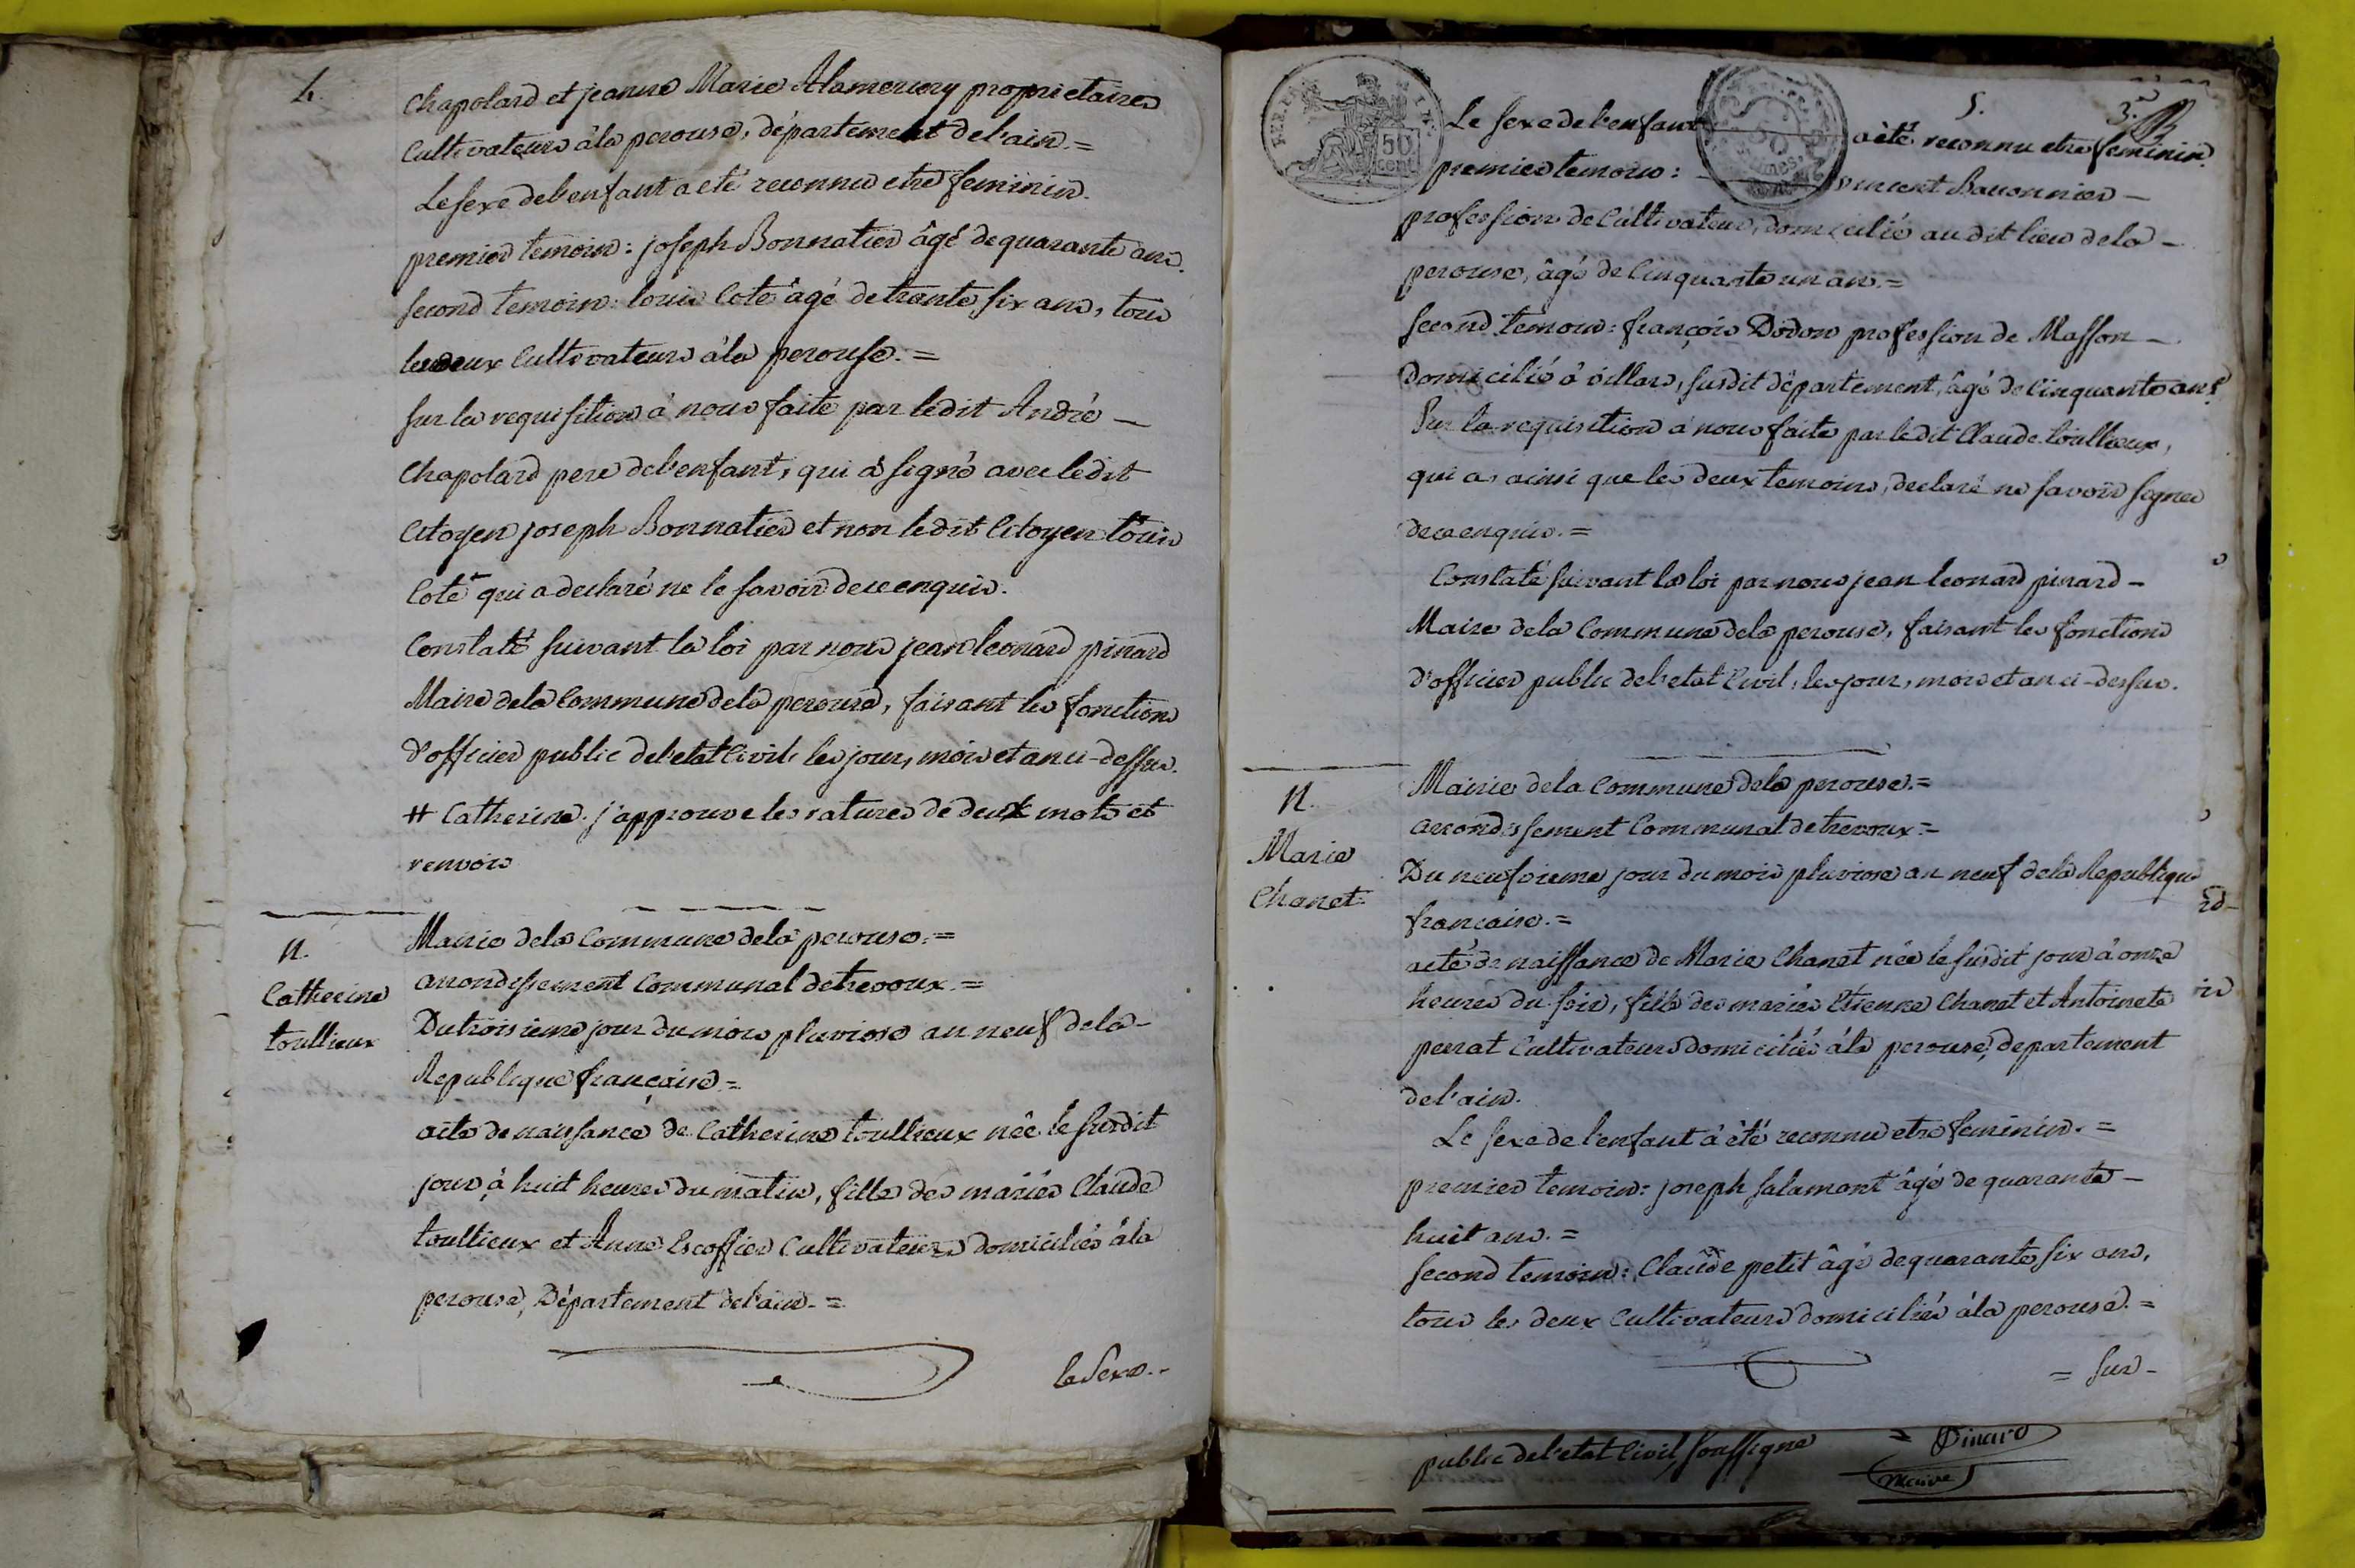 4.
Chapolard et jeanne Marie Alamercery proprietaires
Cultivateurs à la perouse, département de l'ain. =
Le sexe de l'enfant a eté reconnu etre feminin.
premier temoin: joseph Bonnatier âgé de quarante ans.
second temoin: louis Coté âgé de trante six ans, tous
les deux Cultivateurs à la perouse. =
sur la requisition à nous faite par ledit André —
Chapolard pere de l'enfant, qui à signé avec ledit
Citoyen joseph Bonnatier et non ledit Citoyen louis
Coté qui a declaré ne le savoir de ce enquis.
Constaté suivant la loi par nous jean leonard pinard
Maire de la Commune de la perouse, faisant les fonctions
d'officier public de l'etat Civil, les jour, mois et an ci-dessus.
# Catherine. j'approuve les ratures de deux mots et
renvois
N.
Catherine
toullieux
Mairie de la Commune de la perouse. =
arrondissement Communal de trevoux. =
Du troisieme jour du mois pluviose an neuf de la -
Republique française =
acte de naissance de Catherine toullieux née le susdit
jour à huit heures du matin, fille des mariés Claude
toullieux et Anne Escoffier Cultivateurs domiciliés à la
perouse, Département de l'ain. =
le Sexe. -
5.
3.
50
cent
Le sexe de l'enfant a èté reconnu etre feminin.
premier temoin: vincent Bauonnier —
profession de Cultivateur, domicilié au dit lieu de la -
perouse, âgé de Cinquante un ans. =
second temoin: françois Dodon profession de Masson —
Domicilié à villars, susdit département, âgé de Cinquante ans.
Sur la requisition à nous faite par ledit Claude toullieux,
qui a, ainsi que les deux temoins, declaré ne savoir signer
de ce enquis. =
Constaté suivant la loi par nous jean leonard pinard -
Maire de la Commune de la perouse, faisant les fonctions
d'officier public de l'etat Civil, les jour, mois et an ci-dessus.
N.
Marie
Chanet.
Mairie de la Commune de la perouse. =
arrondissement Communal de trevoux =
Du neufvieme jour du mois pluviose an neuf de la Republique
francaise. =
acte de naissance de Marie Chanet née le susdit jour à onze
heures du soir, fille des mariés Etienne Chanet et Antoinete
perrat Cultivateurs domiciliés à la perouse, departement
de l'ain.
Le sexe de l'enfant à èté reconnu etre feminin. =
premier temoin: joseph salamont âgé de quarante -
huit ans. =
second temoin: Claude petit âgé de quarante six ans,
tous les deux Cultivateurs domiciliés à la perouse. =
= sur -
public de l'etat Civil soussigné = Pinard
Maire